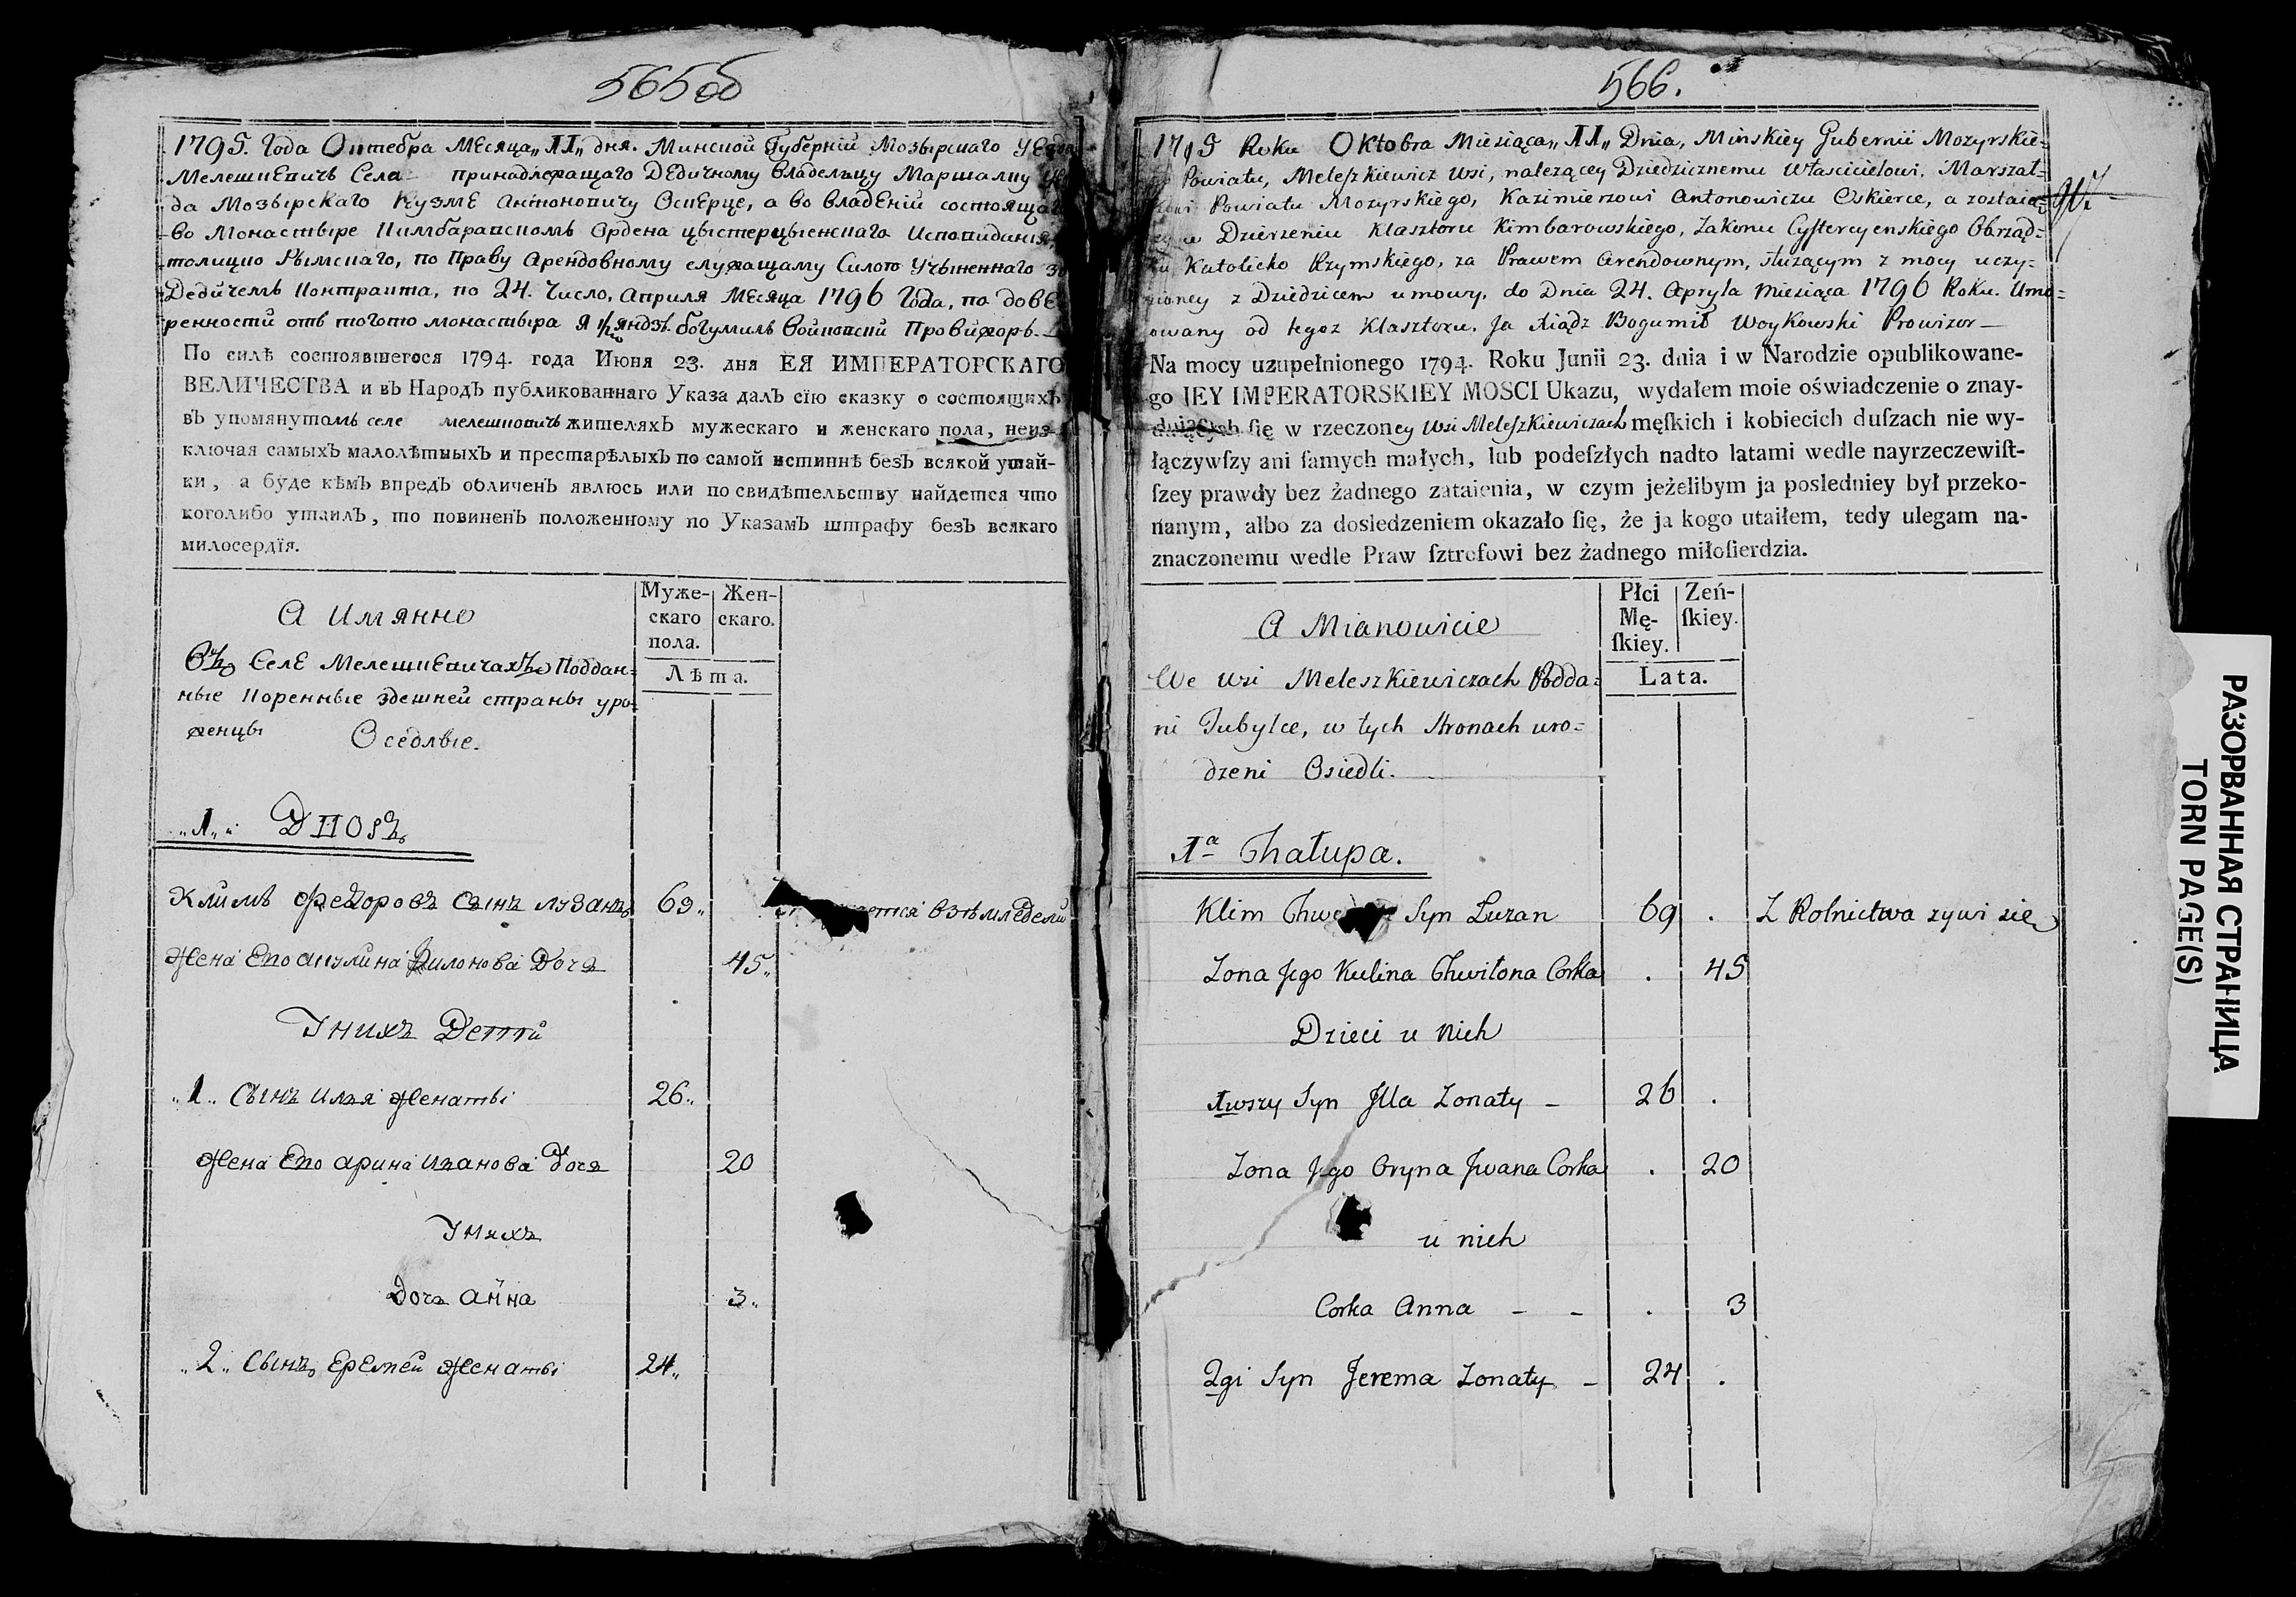 565об
1795. Года Октебра Месяца „11„ дня. Минской Губерній Мозырскаго Уезда
Мелешкевичъ Села принадлежащаго Дедичному владельцу Маршалку Уе
да Мозырскаго Кузме Антоновичу Оскерце, а во владеній состоящаго
во Монастыре Кимбаравскомъ Ордена цыстерцыенскаго Исповидания
толицко Рымскаго, по Праву Арендовному служащему Силою Учыненнаго
Дедичемъ Контракта, по 24. Число, Апреля Месяца 1796 Года, по дове
ренности отъ тогото монастыра Я Ксяндзъ Богумилъ Войковскій Провизоръ
По силѣ состоявшегося 1794. года Июня 23. дня ЕЯ ИМПЕРАТОРСКАГО
ВЕЛИЧЕСТВА и въ Народъ публикованнаго Указа далъ сїю сказку о состоящихъ
въ упомянутомъ селе мелешковичъ жителяхъ мужескаго и женскаго пола, неиз-
ключая самыхъ малолѣтныхъ и престарѣлыхъ по самой истиннѣ безъ всякой утай-
ки, а буде кѣмъ впредъ обличенъ явлюсь или по свидѣтельству найдется что
коголибо утаилъ, то повиненъ положенному по Указамъ штрафу безъ всякаго
милосердїя.
А Имянно
Муже-
скаго
пола.
Жен-
скаго.
Лѣта.
Въ Селе Мелешкевичахъ Поддан=
ные Коренные здешней страны уро=
женцы Оседлые.
„1„ Дворъ
Климъ Федоровъ сынъ Лузанъ 69„ етси взѣмледели
Жена Его Акулина Филонова Дочь 45„
У нихъ Дети
„1„ Сынъ Илья Женаты 26„
Жена Его Арина Иванова Дочь 20
У нихъ
Дочь Анна 3„
„2„ Сынъ Еремей Женаты 24„
566.
1795 Roku Oktobra Miesiąca „11„ Dnia, Minskiey Gubernii Mozyrskie=
Powiatu, Meleszkiewicz wsi, nalezącey Dziedzicznemu Włascicielowi, Marszał=
kowi Powiatu Mozyrskiego, Kazimierzowi Antonowiczu Oskierce, a zostaią=
w Dzierzeniu Klasztoru Kimbarowskiego, Zakonu Cystercyenskiego Obrząd=
ku Katolicko Rzymskiego, za Prawem Arendownym, służącym z mocy uczy=
nioney z Dziedzicem umowy, do Dnia 24. Apryla Miesiąca 1796 Roku. Umo=
cowany od tegoz Klasztoru. Ja Xiądz Bogumił Woykowski Prowizor
Na mocy uzupełnionego 1794. Roku Junii 23. dnia i w Narodzie opublikowane-
go JEY IMPERATORSKIEY MOSCI Ukazu, wydałem moie oświadczenie o znay-
duiących ſię w rzeczoney wsi Meleszkiewiczach męſkich i kobiecich duſzach nie wy-
łączywſzy ani ſamych małych, lub podeſzłych nadto latami wedle nayrzeczewiſt-
ſzey prawdy bez żadnego zataienia, w czym jeżelibym ja posledniey był przeko-
nanym, albo za dosiedzeniem okazało ſię, że ja kogo utaiłem, tedy ulegam na-
znaczonemu wedle Praw ſztrofowi bez żadnego miłoſierdzia.
A Mianowicie
Płci
Mę-
ſkiey.
Zeń-
ſkiey.
Lata.
We wsi Meleszkiewiczach Podda=
ni Tubylce, w tych stronach uro=
dzeni Osiedli.
1a Chałupa.
Klim Syn Luzan 69 . Z Rolnictwa zywi sie
Zona Jego Kulina Chwilona Corka . 45
Dzieci u nich
1wszy Syn Illa Zonaty – 26 .
Zona Jego Oryna Jwana Corka . 20
u nich
Corka Anna – – . 3
2gi Syn Jerema Zonaty – 24 .
РАЗОРВАННАЯ СТРАНИЦА
TORN PAGE(S)